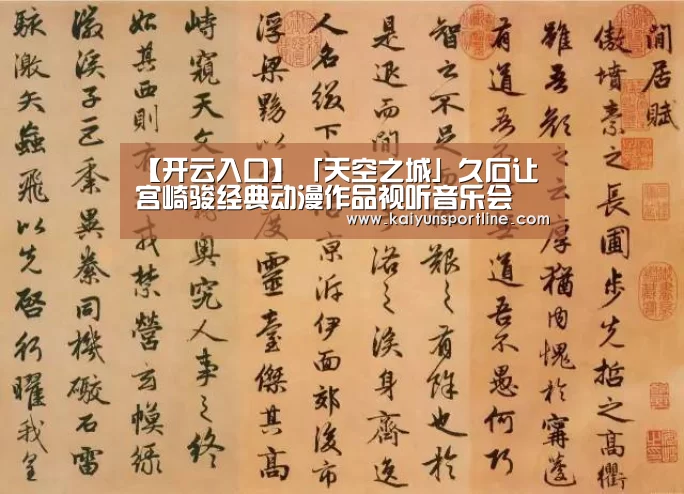 【开云入口】「天空之城」久石让
宫崎骏经典动漫作品视听音乐会
www.kaiyunsportline.com
閒居賦
傲墳素之長圃步先哲之高衢
雖吾顏之云厚猶內愧於甯蘧
有道吾道吾不愚何巧
智之不足艱之有餘也於
是退而閒洛之涘身齊逸
人名綴下京泝伊面郊後市
浮梁黝以度靈臺傑其高
峙窺天文奧究人事之終
始其西則有戎禁營玄幙綠
徽溪子巨黍異絭同機礮石雷
駭激矢蝱飛以先啓行曜我皇